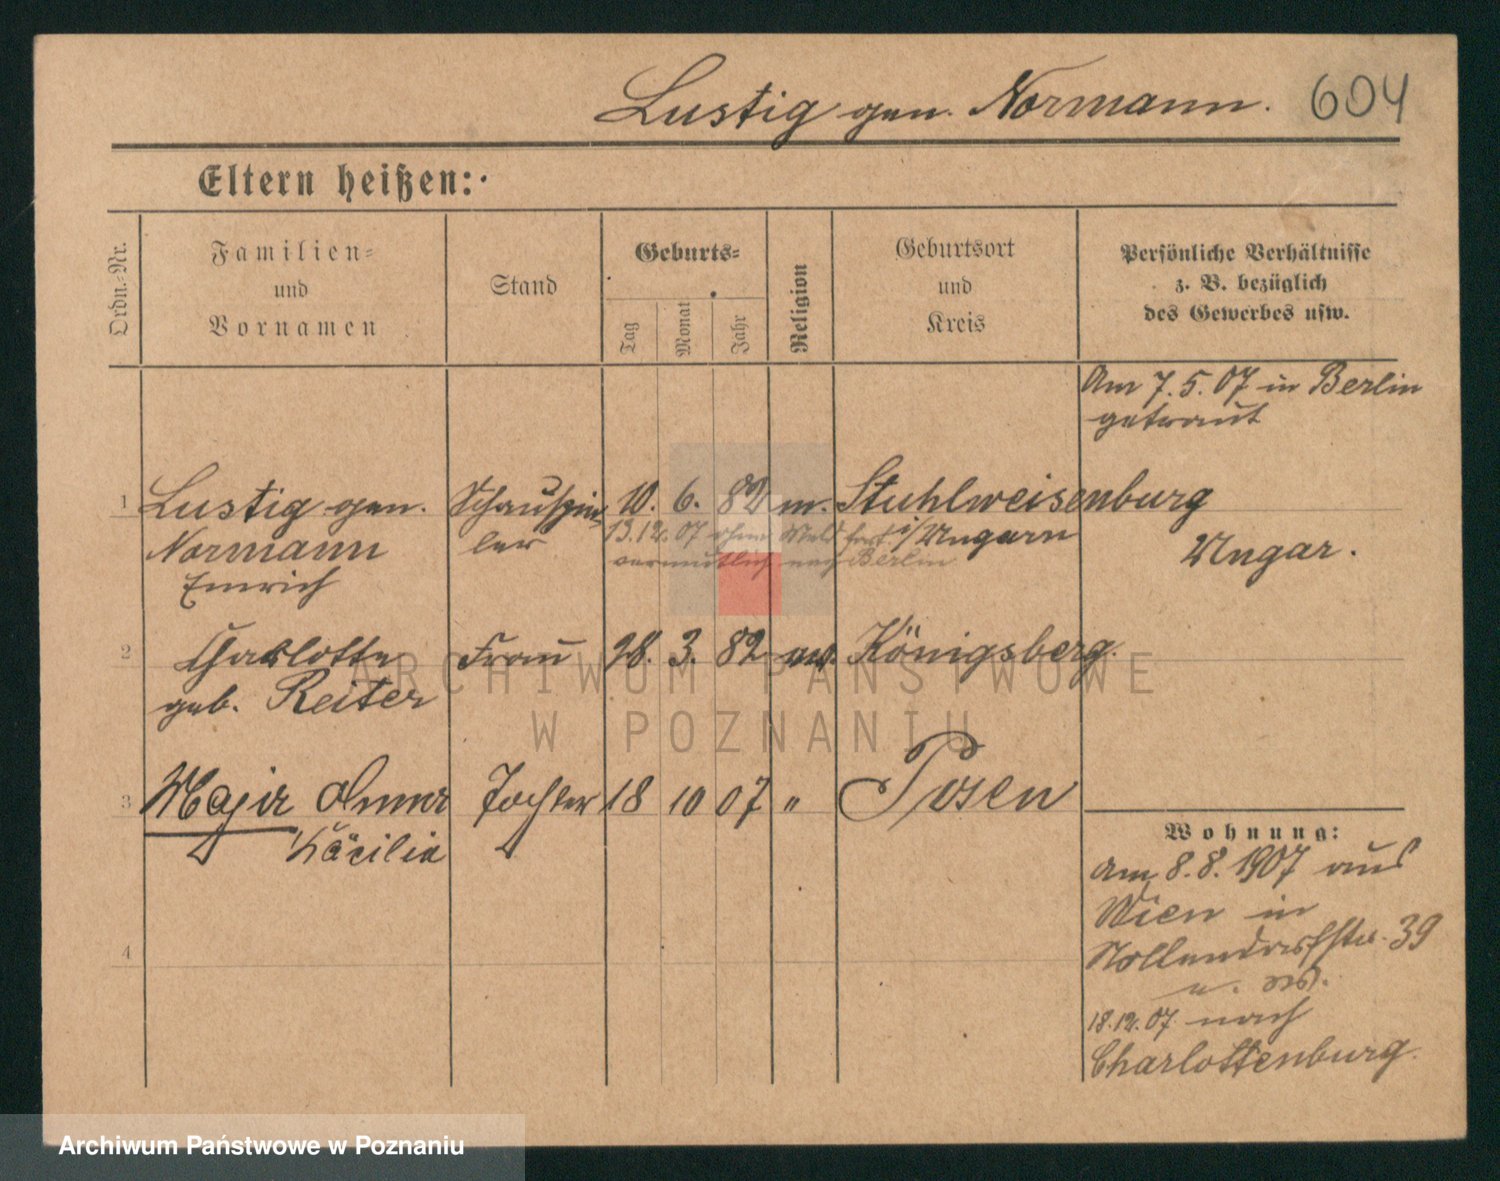 Lustig gen. Normann. 604
Eltern heißen:
Ordn.-Nr.
Familien-
und
Vornamen
Stand
Geburts-
Tag
Monat
Jahr
Religion
Geburtsort
und
Kreis
Persönliche Verhältnisse
z. B. bezüglich
des Gewerbes usw.
Am 7.5.07 in Berlin
getraut
1 Lustig gen. Schauspie- 10. 6. 82 m. Stuhlweisenburg
Normann ler 13.12.07 ohne Meld fort i/Ungarn
Emrich vermutlich nach Berlin
Ungar.
2 Charlotte Frau 28. 3. 82 Königsberg.
geb. Reiter
3 Maja Anna Tochter 18 10 07 " Posen
Cäcilia
4
Wohnung:
Am 8.8.1907 aus
Wien in
Nollendorfstr. 39
18.12.07 nach
Charlottenburg.
ARCHIWUM PAŃSTWOWE
W POZNANIU
Archiwum Państwowe w Poznaniu